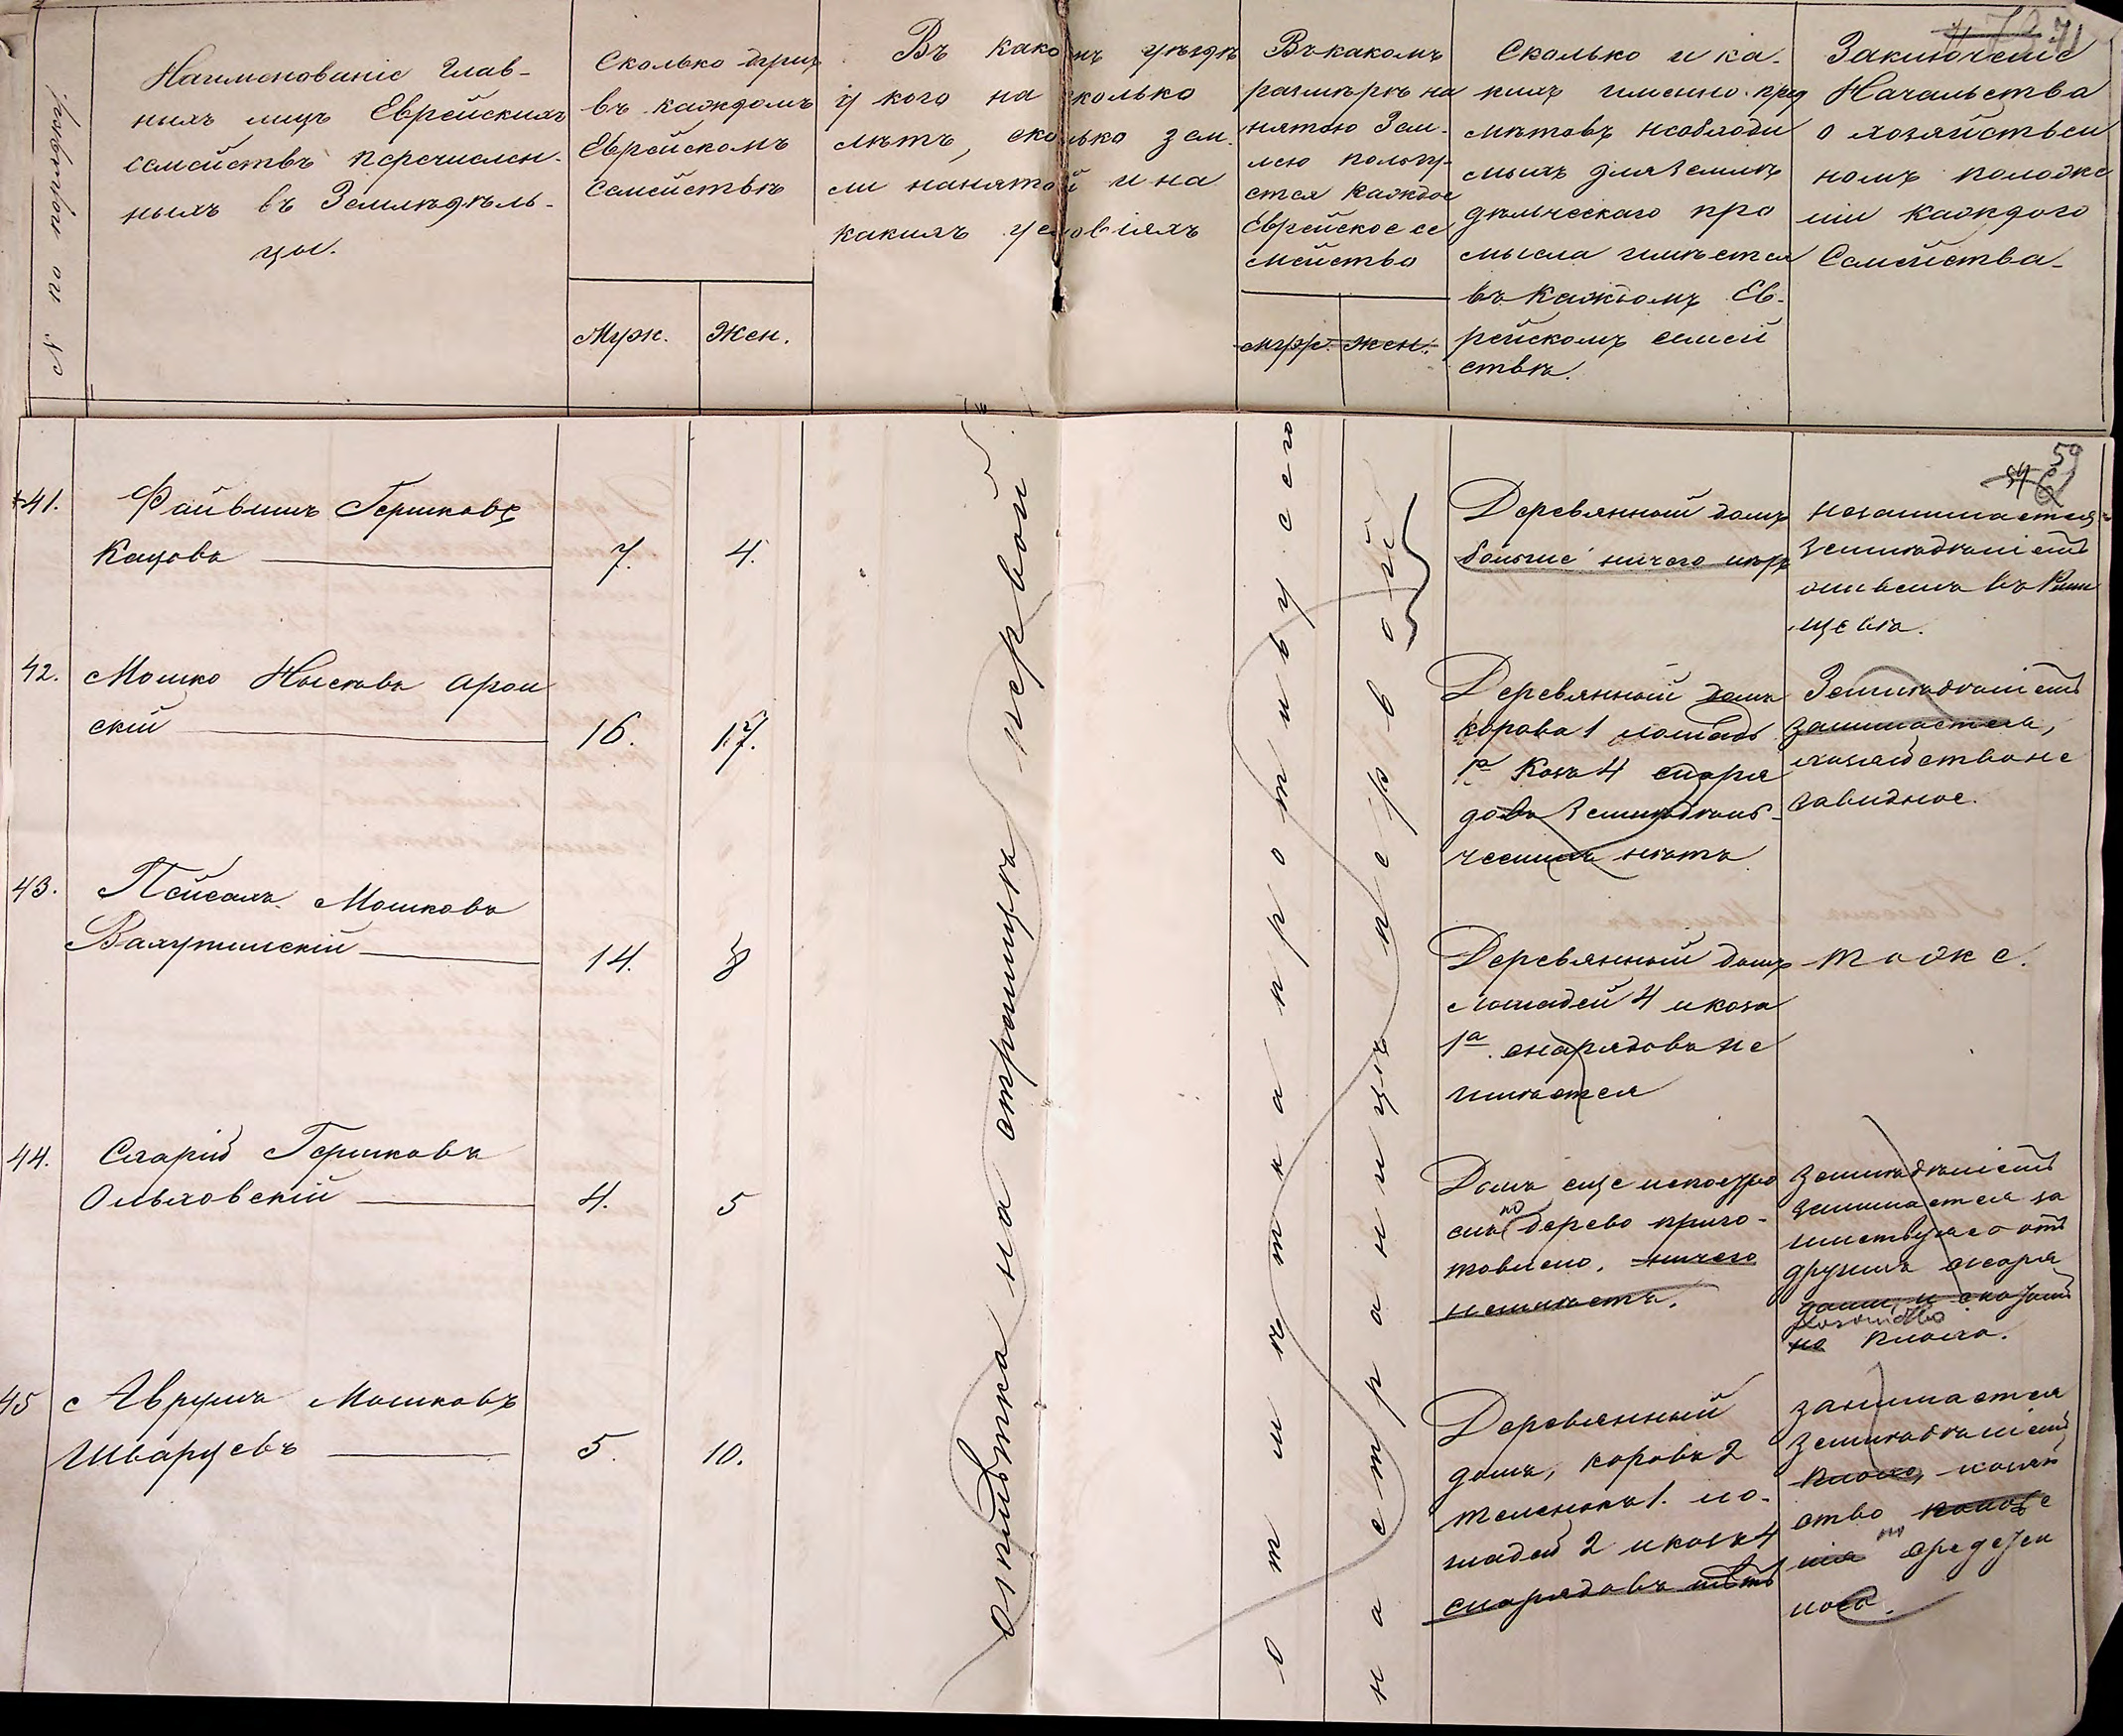 № по порядку
Наименованіе Глав-
ныхъ лицъ Еврейскихъ
семействъ перечислен-
ныхъ въ Земледѣль-
цы.
Сколько душъ
въ каждомъ
Еврейскомъ
Семействѣ
Муж. Жен.
Въ какомъ уѣздѣ
у кого на сколько
лѣтъ, сколько зем-
ли нанятой и на
какихъ условіяхъ
Въ какомъ
размѣрѣ на
нятою Зем-
лею пользу-
ется Каждое
Еврейское се
мейство
муж. жен.
Сколько и ка-
кихъ именно пред
мѣтовъ необходи
мыхъ для земле
дѣльческаго про
мысла имѣется
въ Каждомъ Ев-
рейскомъ семей
ствѣ.
Заключеніе
Начальства
о хозяйствен
номъ положе
ніи каждого
Семейства.
71
59
41. Файвишъ Гершковъ
Кацовъ 7. 4.
Деревянный домъ
больше ничего нѣтъ
незанимается
земледѣліемъ
42. Мошко Арон
скій 16. 17.
Деревянный домъ
корова 1 лошадь
1а Козъ 4 снаря
довъ Земледѣль-
ческихъ нѣтъ
Земледѣліемъ
занимается,
хозяйство не
завидное.
43. Пейсахъ Мошковъ
14. 8
Деревянный домъ
лошадей 4 и коза
1а снарядовъ не
имѣется
тоже.
44. Гершковъ
Ольховскій 4. 5
Домъ еще непостро
енъ но дерево приго-
товлено, ничего
неимѣетъ.
земледѣліемъ
занимается за
отъ
другихъ снаря
дами, и
хозяйство
но плохо.
45 Аврумъ Мошковъ
Шварцевъ 5. 10.
Деревянный
домъ, коровъ 2
теленокъ 1. ло-
шадей 2 и козъ 4
снарядовъ нѣтъ
занимается
земледѣліемъ
плохо, хозяй
ство
отмѣтка на страницѣ первой
отмѣтка противу сего
на страницѣ первой